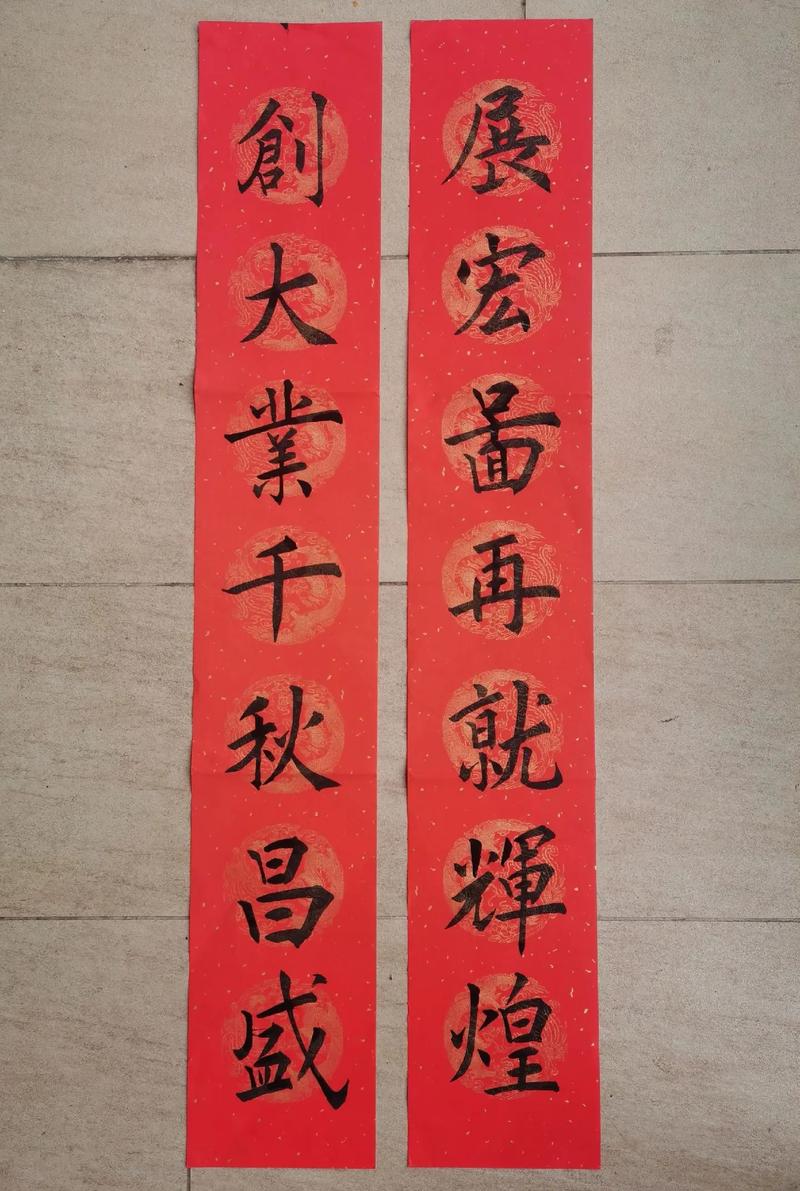 展宏圖再就輝煌
創大業千秋昌盛